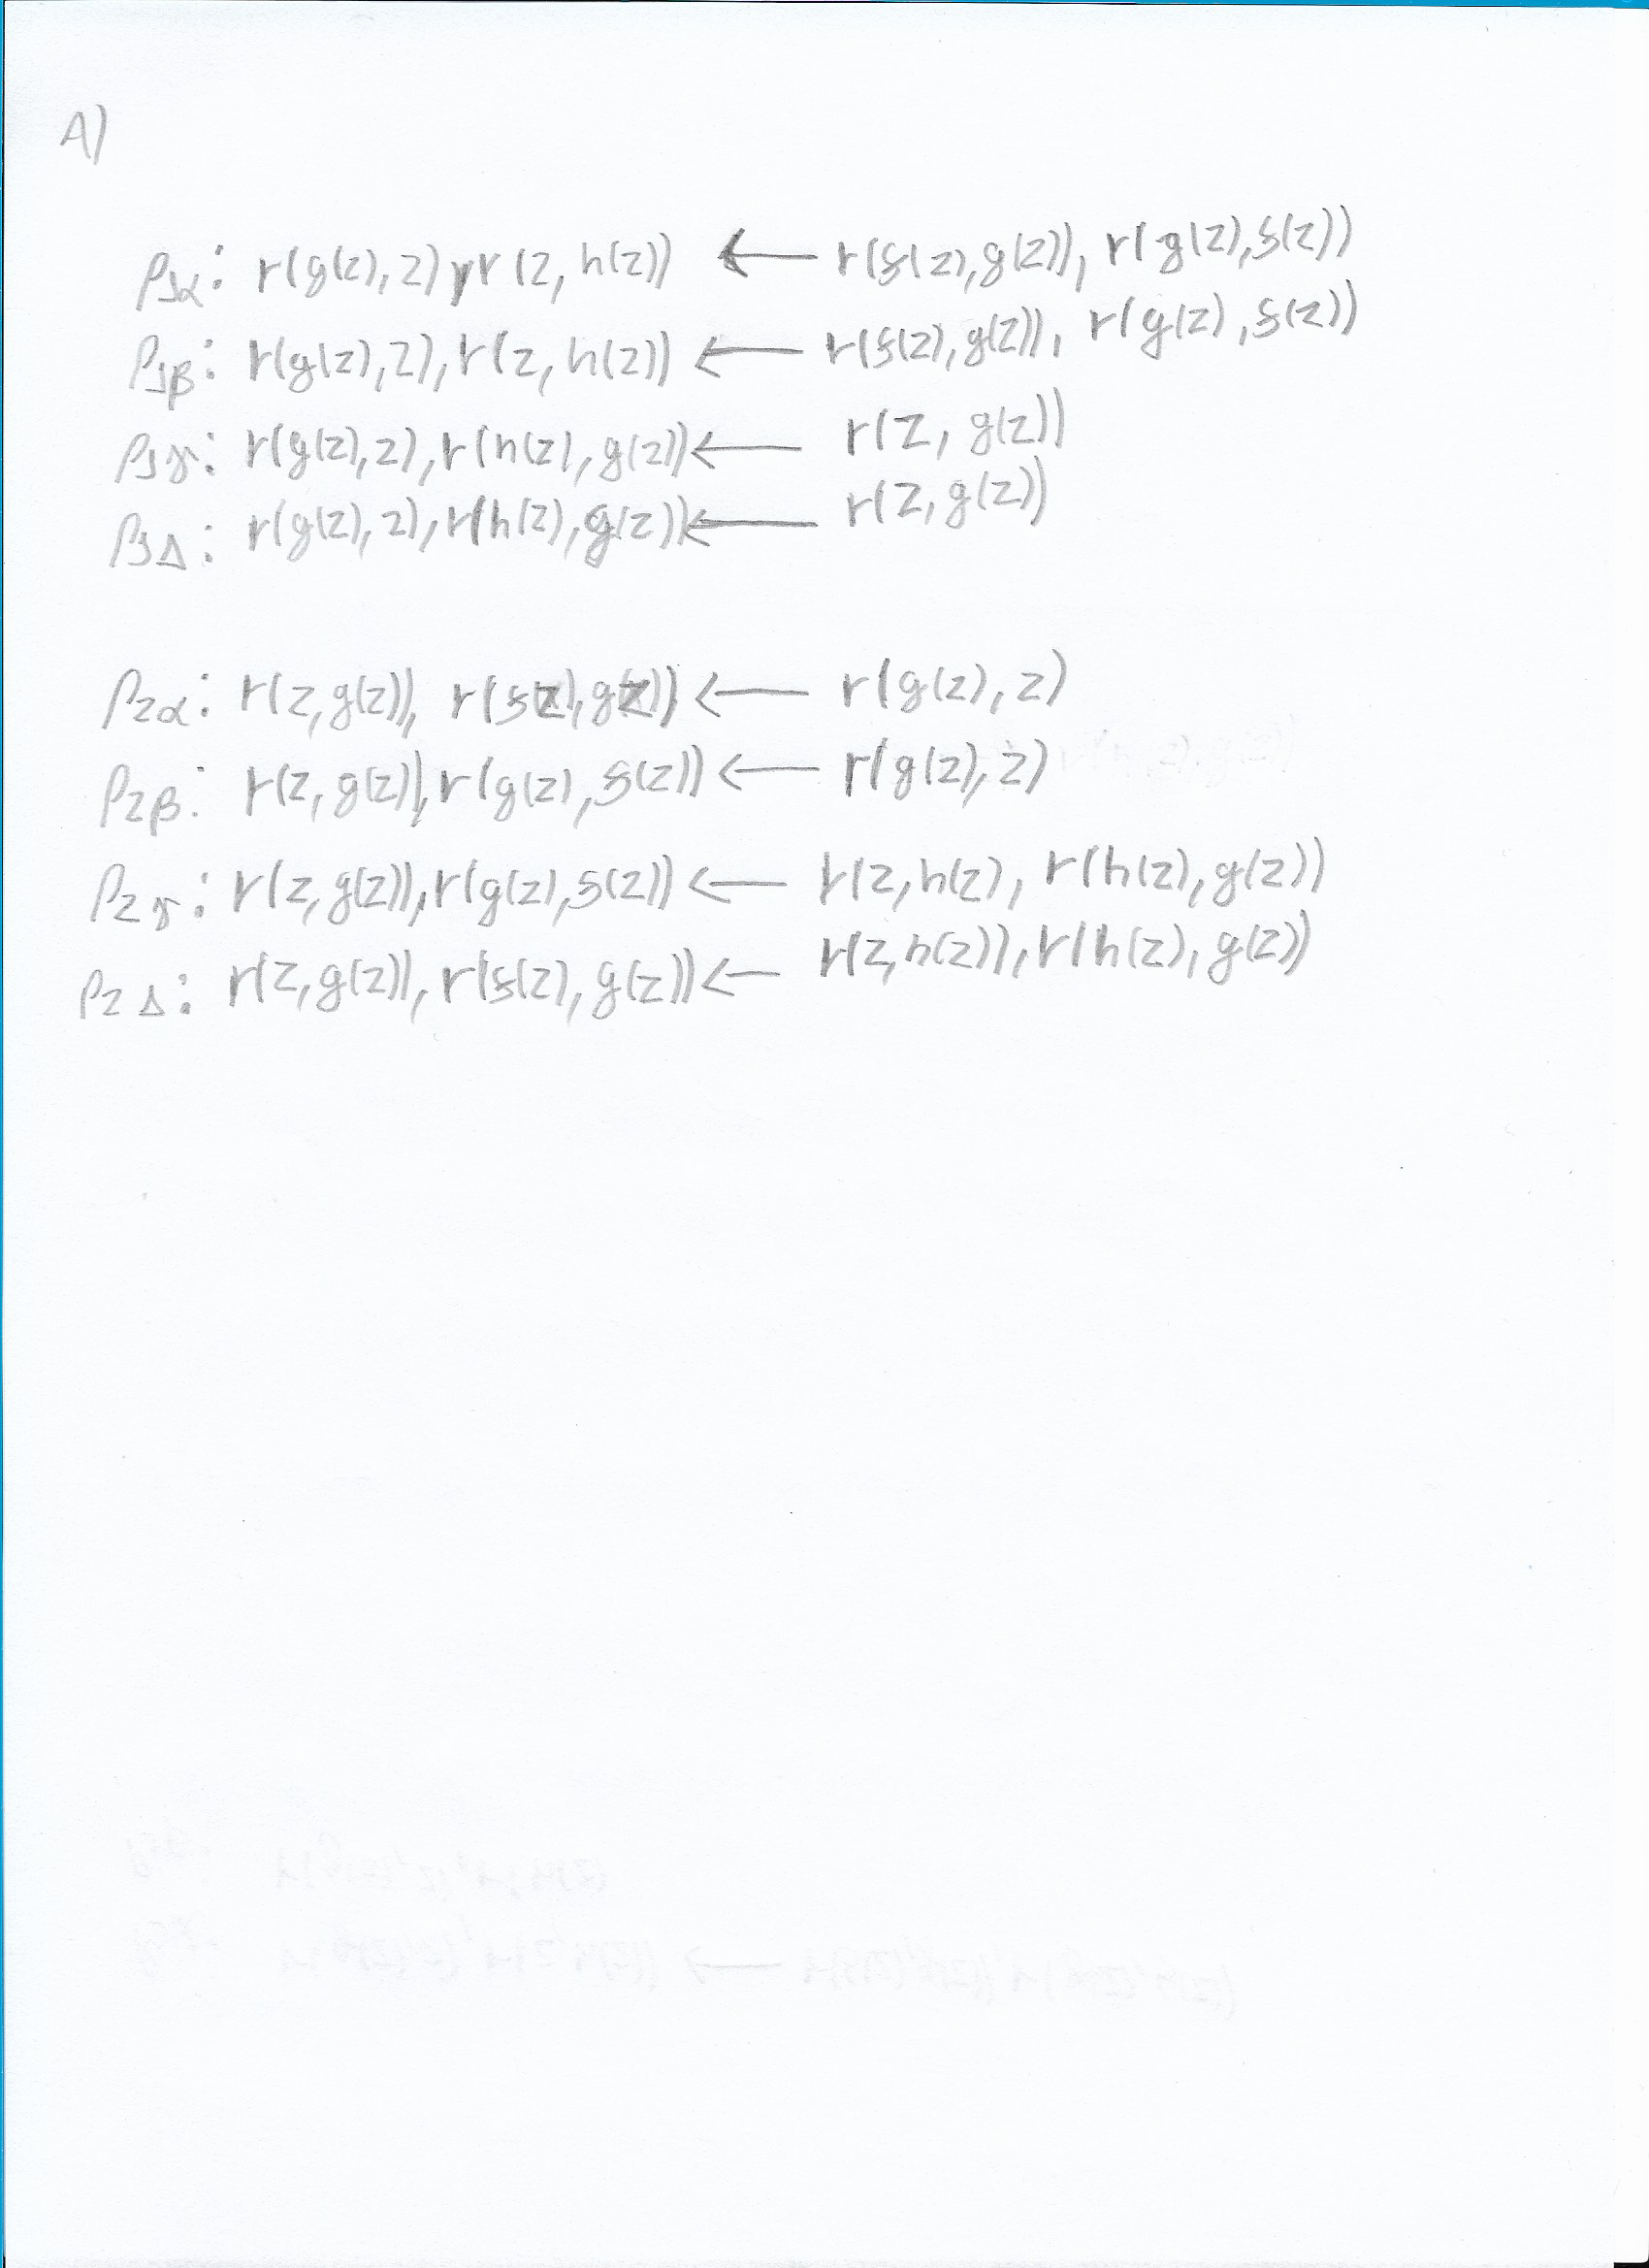 A)
ρ1α: r(g(z),z), r(z,h(z)) ← r(f(z),g(z)), r(g(z),f(z))
ρ1β: r(g(z),z), r(z,h(z)) ← r(f(z),g(z)), r(g(z),f(z))
ρ1γ: r(g(z),z), r(h(z),g(z)) ← r(z, g(z))
ρ1Δ: r(g(z),z), r(h(z),g(z)) ← r(z,g(z))
ρ2α: r(z,g(z)), r(f(z),g(z)) ← r(g(z),z)
ρ2β: r(z,g(z)), r(g(z),f(z)) ← r(g(z),z)
ρ2γ: r(z,g(z)), r(g(z),f(z)) ← r(z,h(z), r(h(z),g(z))
ρ2Δ: r(z,g(z)), r(f(z),g(z)) ← r(z,h(z)), r(h(z),g(z))